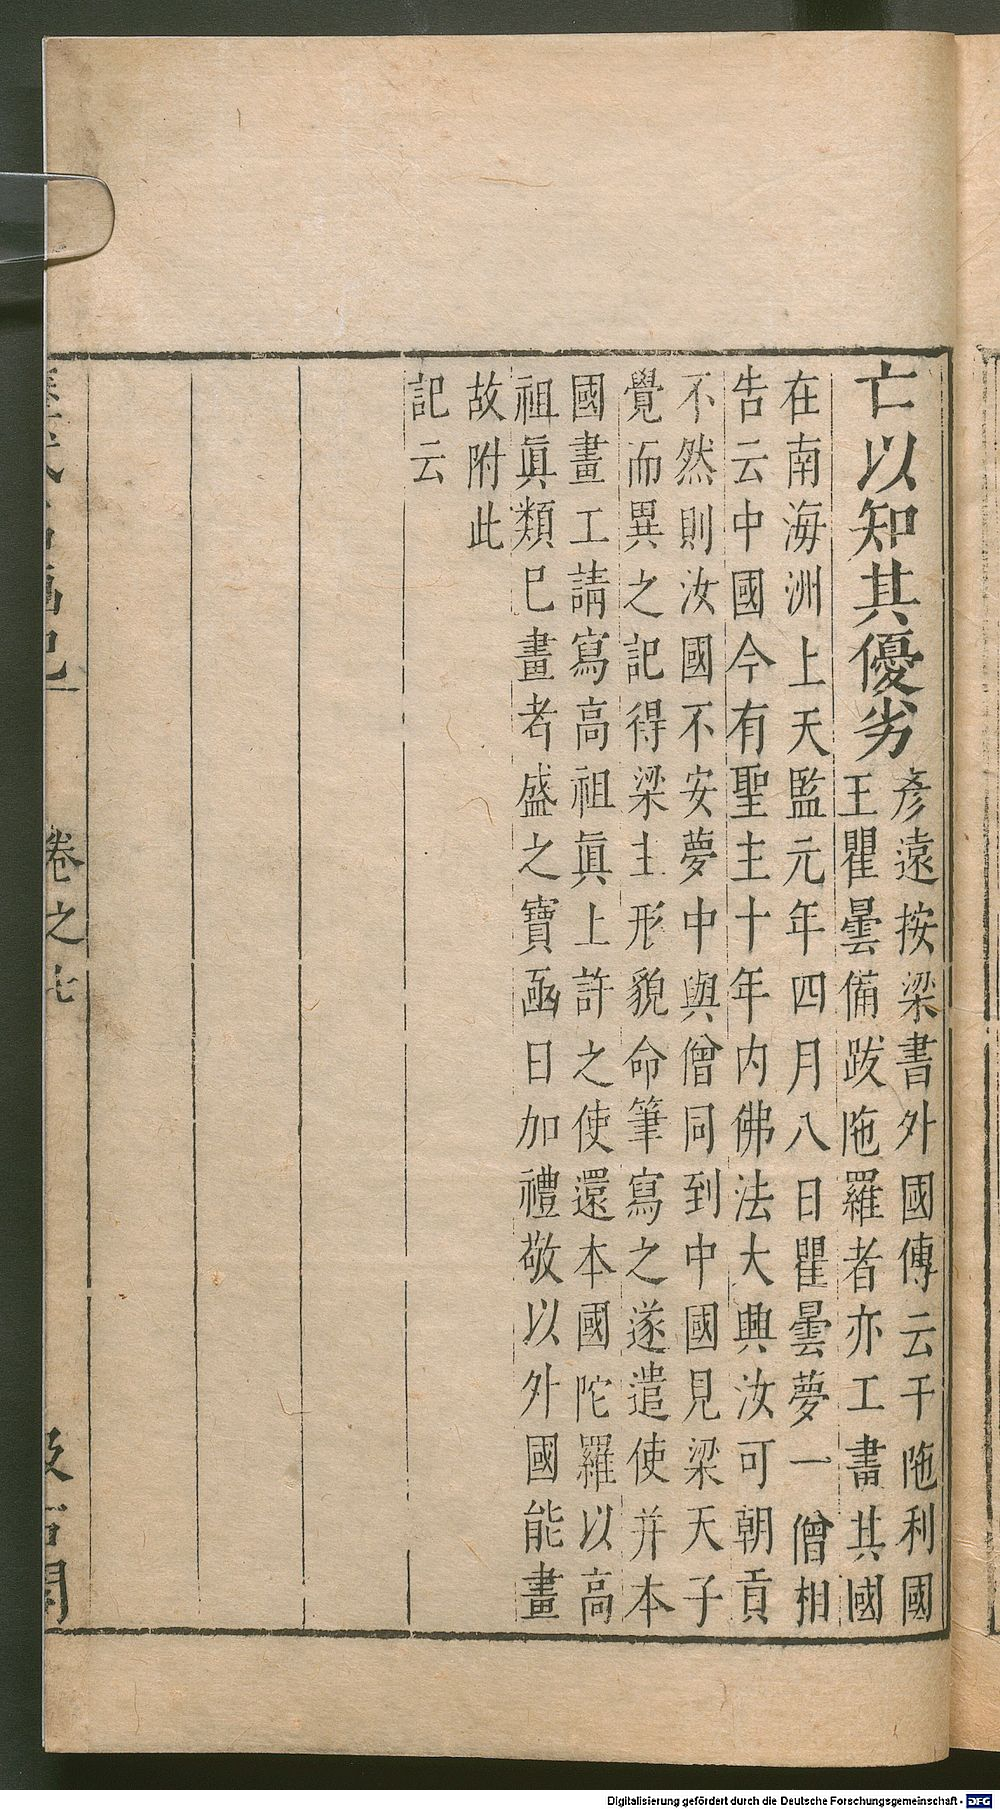 亡以知其優劣
彥遠按梁書外國傳云干陁利國
王瞿曇備跋陁羅者亦工畫其國
在南海洲上天監元年四月八日瞿曇夢一僧相
告云中國今有聖主十年內佛法大興汝可朝貢
不然則汝國不安夢中與僧同到中國見梁天子
覺而異之記得梁主形貌命筆寫之遂遣使并本
國畫工請寫高祖眞上許之使還本國陀羅以高
祖眞類巳畫者盛之寶函日加禮敬以外國能畫
故附此
記云
歷代名畫記
卷之七
汲古閣
Digitalisierung gefördert durch die Deutsche Forschungsgemeinschaft - DFG